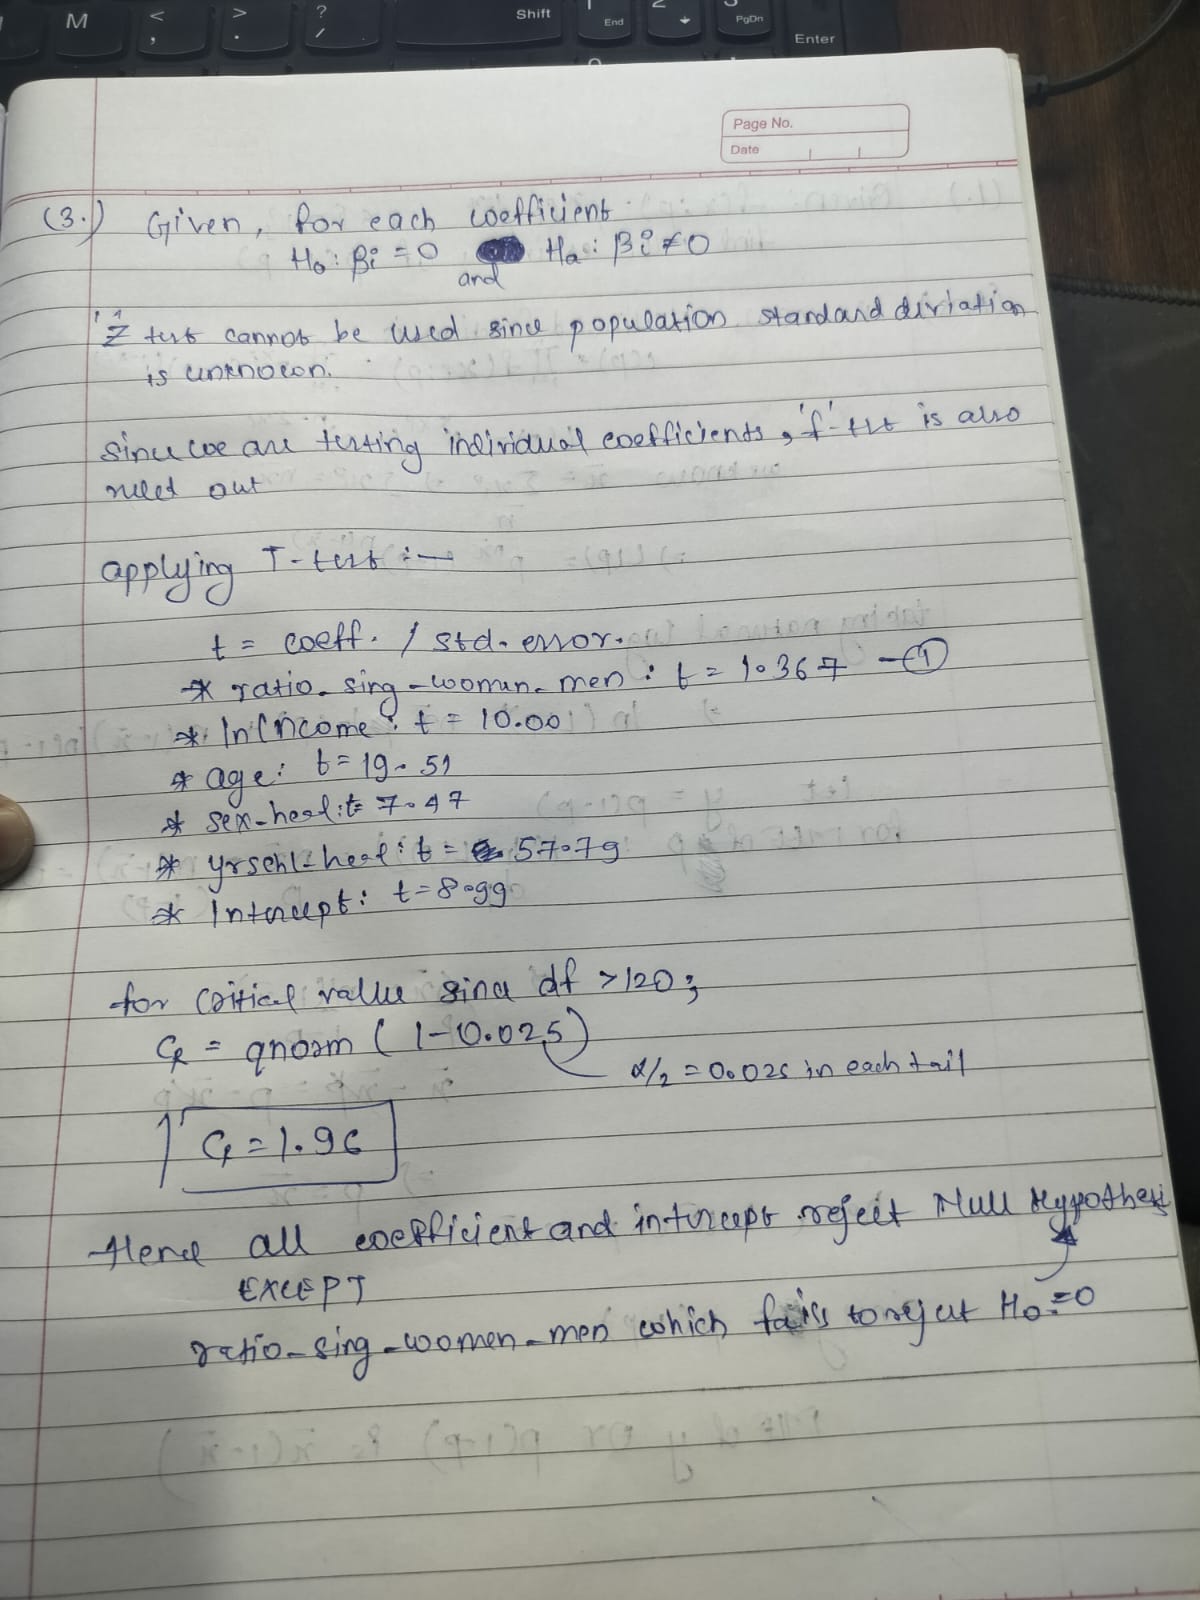 M
<
,
>
.
?
/
Shift
End
PgDn
Enter
Page No.
Date
(3.) Given, for each coefficient
H₀: βi = 0 and Ha: βi ≠ 0
'Z' test cannot be used since population standard diviation
is unknown.
since we are testing individual coefficients, 'f'-test is also
ruled out
applying T-test :-
t = coeff. / std. error.
* ratio-sing-woman-men : t = 1.367 -①
* ln(ncome : t = 10.00
* age: t = 19.51
* sex-head: t = 7.47
* yrschl-head: t = 57.79
* Intercept: t = 8.99
for critical value since df > 120;
= qnorm ( 1-0.025)
α/2 = 0.025 in each tail
= 1.96
Hence all coefficient and intercept reject Null Hypothesis
EXCEPT
ratio-sing-women-men which fails to reject H₀:=0